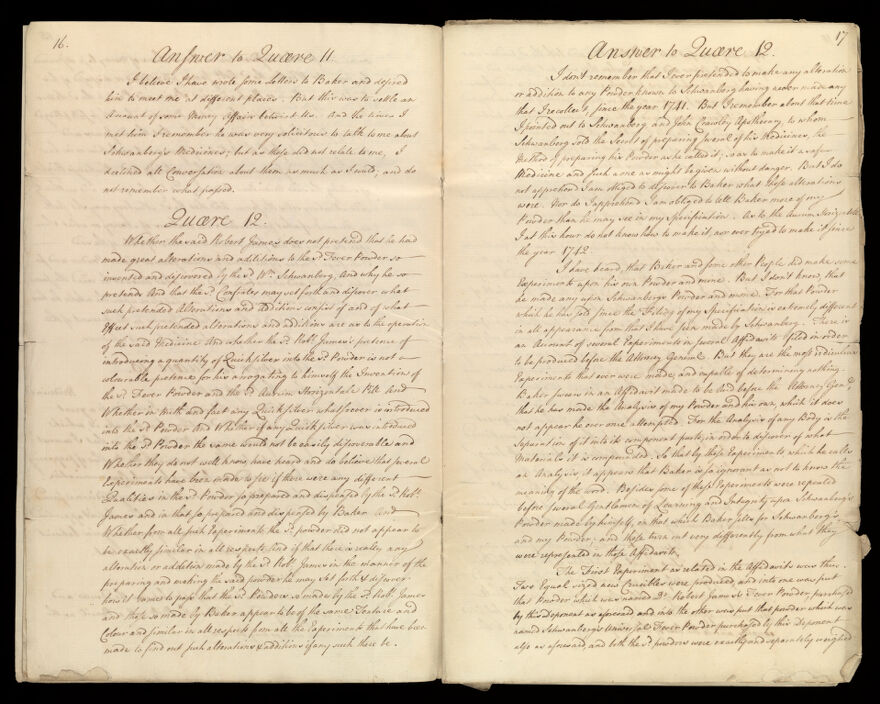 16.
Answer to Quære 11
I believe I have wrote some Letters to Baker and desired
him to meet me at different places. But this was to settle an
Account of some Money Affair betwixt Us. And the times I
met him I remember he was very solicitous to talk to me about
Schwanberg's Medicines; but as these did not relate to me, I
declined all Conversation about them as much as I could, and do
not remember what passed.
Quære 12.
Whether the said Robert James does not pretend that he had
made great alterations and additions to the sd. Fever Powder so
invented and discovered by the sd. Wm. Schwanberg, And why he so
pretends And that the sd. may set forth and discover what
such pretended Alterations and additions consist of and of what
Effect such pretended alterations and additions are as to the operation
of the said Medicine And whether the sd. Robt. James's pretence of
introducing a quantity of Quicksilver into the sd. Powder is not a
colourable pretence for his arrogating to himself the Invention of
the sd. Fever Powder and the sd. Aurum Horizontale Pill And
Whether in truth and fact any Quicksilver whatsoever is introduced
into the sd. Powder And Whether if any Quicksilver was introduced
into the sd. Powder the same would not be easily discoverable and
Whether they do not well know, have heard and do believe that several
Experiments have been made to see if there were any different
Qualities in the sd. Powder so prepared and dispensed by the sd. Robt.
James and in that so prepared and dispensed by Baker And
Whether from all such Experiments the sd. powder did not appear to
be exactly similar in all respects And if that there is really any
alteration or addition made by the sd. Robt. James in the manner of the
preparing and making the said powder he may set forth & discover
how it comes to pass that the sd. Powders so made by the sd. Robt. James
and those so made by Baker appear to be of the same Texture and
Colour and similar in all respects from all the Experiments that have been
made to find out such alterations & additions if any such there be.
17
Answer to Quære 12.
I don't remember that I ever pretended to make any alteration
or addition to any Powder known to Schwanberg having never made any
that I recollect, since the year 1741. But I remember about that time
I pointed out to Schwanberg and John Crawley Apothecary, to whom
Schwanberg sold the Secret of preparing several of his Medicines, the
Method of preparing his Powder as he called it; so as to make it a safer
Medicine and such a one as might be given without danger. But I do
not apprehend I am obliged to discover to Baker what these alterations
were. Nor do I apprehend I am obliged to tell Baker more of my
Powder than he may see in my Specification. As to the Aurum Horizontale
I at this hour do not know how to make it, nor ever tryed to make it since
the year 1742
I have heard, that Baker and some other People did make some
Experiments upon his own Powder and mine. But I don't know, that
he made any upon Schwanberg's Powder and mine. For that Powder
which he has sold since the Filing of my Specification is extremely different
in all appearance from that I have seen made by Schwanberg. There is
an Account of several Experiments in several Affidavits filed in order
to be produced before the Attorney General. But they are the most ridiculous
Experiments that ever were made, and capable of determining nothing.
Baker swears in an Affidavit made to be laid before the Attorney Genl.,
that he has made the Analysis of my Powder and his own, which it does
not appear he ever once attempted. For the Analysis of any Body is the
separation of it into its component parts, in order to discover of what
Materials it is compounded. So that by these Experiments which he calls
an Analysis it appears that Baker is so ignorant as not to know the
meaning of the word. Besides some of these Experiments were repeated
before several Gentlemen of Learning and Integrity upon Schwanberg's
Powder made by himself, on that which Baker sells for Schwanberg's,
and my Powder; and those turn out very differently from what they
were represented in those Affidavits.
The First Experiment as related in the Affidavits was this.
Two Equal sized new Crucibles were produced, and into one was put
that Powder which was named Dr. Robert James's Fever Powder, purchased
by this Deponent as aforesaid and into the other was put that powder which was
named Schwanberg's Universal Fever Powder purchased by this Deponent
also as aforesaid, and both the sd. powders were exactly and separately weighed